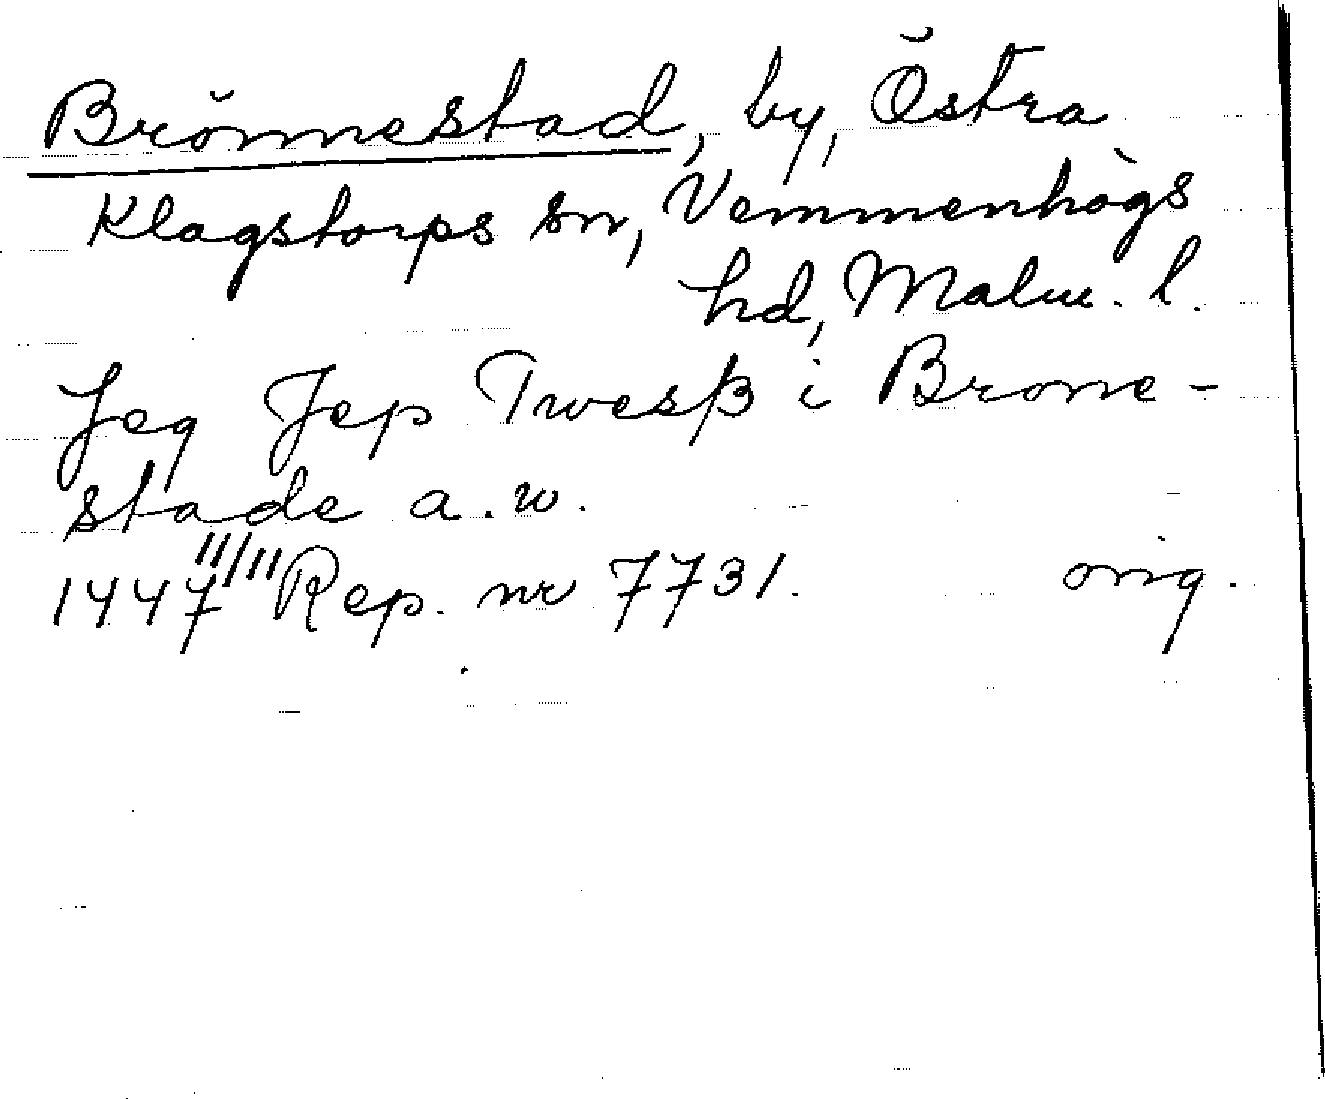 Brönnestad, by, Östra
Klagstorps sn, Vemmenhögs
hd, Malm. l.
Jeg Jep Twesß i Brone-
stade a. w.
1447 11/11 Rep. nr 7731. orig.